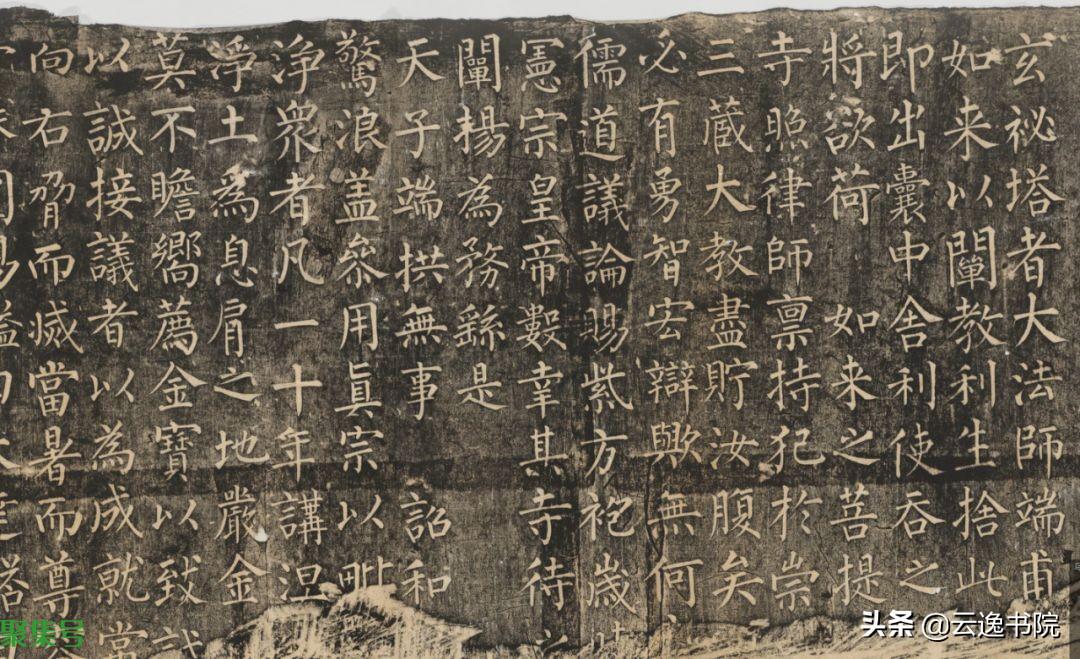 玄祕塔者大法師端甫
如来以闡教利生捨此
即出囊申舍利使吞之
將欲荷 如来之菩提
寺照律師禀持犯於崇
三蔵大教盡貯汝腹矣
必有勇智宏辯歟無何
儒道議論賜紫方袍歳
憲宗皇帝數幸其寺待
闡揚為務繇是
天子端拱無事 詔和
驚浪盖叅用真宗以毗
浄衆者凡一十年講涅
浄土為息肩之地嚴金
莫不瞻嚮薦金寶以致
以誠接議者以為成就常
向右脅而滅當暑而尊
聚集号
头条 @云逸书院